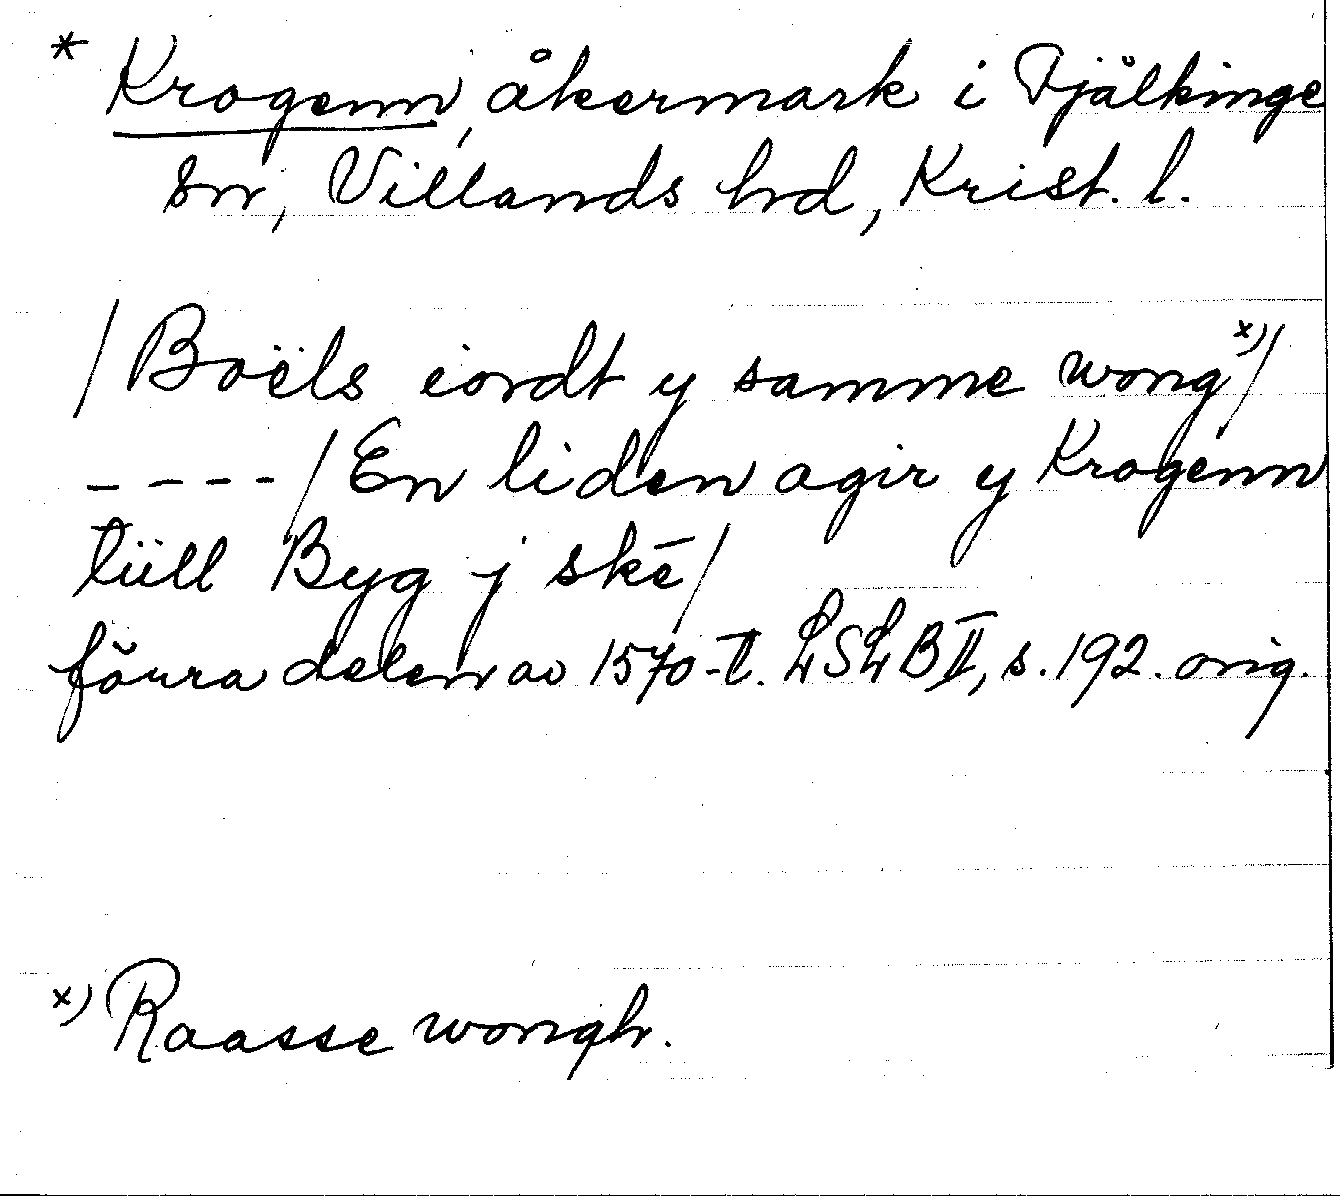 * Krogenn, åkermark i Fjälkinge
sn, Villands hrd, Krist. l.
/Boëls iordt y samme wong x)/
---- /En liden agir y Krogenn
tiill Byg j skē/
förra delen av 1570-t. LSLB II, s. 192. orig.
x) Raasse wongh.